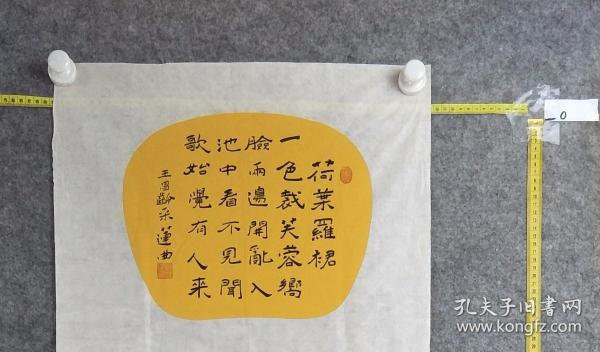 荷葉羅裙
一色裁芙蓉嚮
臉兩邊開亂入
池中看不見聞
歌始覺有人来
王昌齡采蓮曲
0
孔夫子旧书网
www.kongfz.com